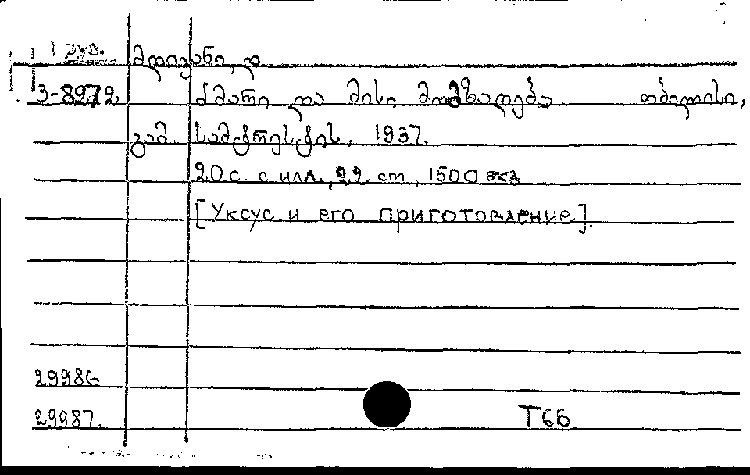 1 груз. მდივანი, დ
3-8972 ძმარი და მისი მომზადება თბილისი,
გამ. სამტრესტის, 1937.
20 с. с илл., 22 cm, 1500 экз
[Уксус и его приготовление].
29986
29987. Т6Б